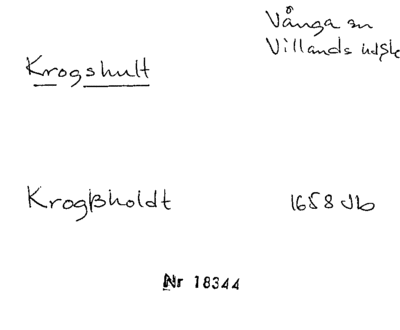 Vånga sn
Villands hd Sk
Krogshult
Krogßholdt 1658 Jb
Nr 18344